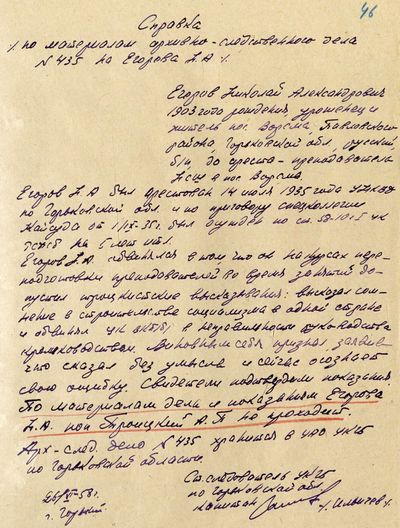 46
Справка
/ по материалам архивно-следственного дела
№ 435 на Егорова Н.А /
Егоров Николай Александрович
1903 года рождения, уроженец и
житель пос. Ворсма, Павловского
района, Горьковской обл, русский,
б/п, до ареста - преподаватель
НСШ в пос Ворсма.
Егоров Н.А был арестован 14 июля 1935 года УНКВД
по Горьковской обл. и по приговору спецколлегии
Крайсуда от был осужден по ст. 58-10 ч УК
РСФСР на 5 лет ИТЛ.
Егоров Н.А обвинялся в том что он на курсах пере-
подготовки преподавателей во время занятий до-
пустил троцкистские высказывания: высказал сом-
нение в строительстве социализма в одной стране
и обвинял ЦК ВКП/б/ в неправильности руководства
Виновным себя признал заявив
что сказал без умысла и сейчас осознает
свою ошибку. Свидетели подтвердили показания.
По материалам дела и показаниям Егорова
Н.А. поп Троицкий А.П не проходит.
Арх-след. дело № 435 хранится в УАО УКГБ
по Горьковской области.
Ст. следователь УКГБ
по Горьковской обл
капитан /
г. Горький.